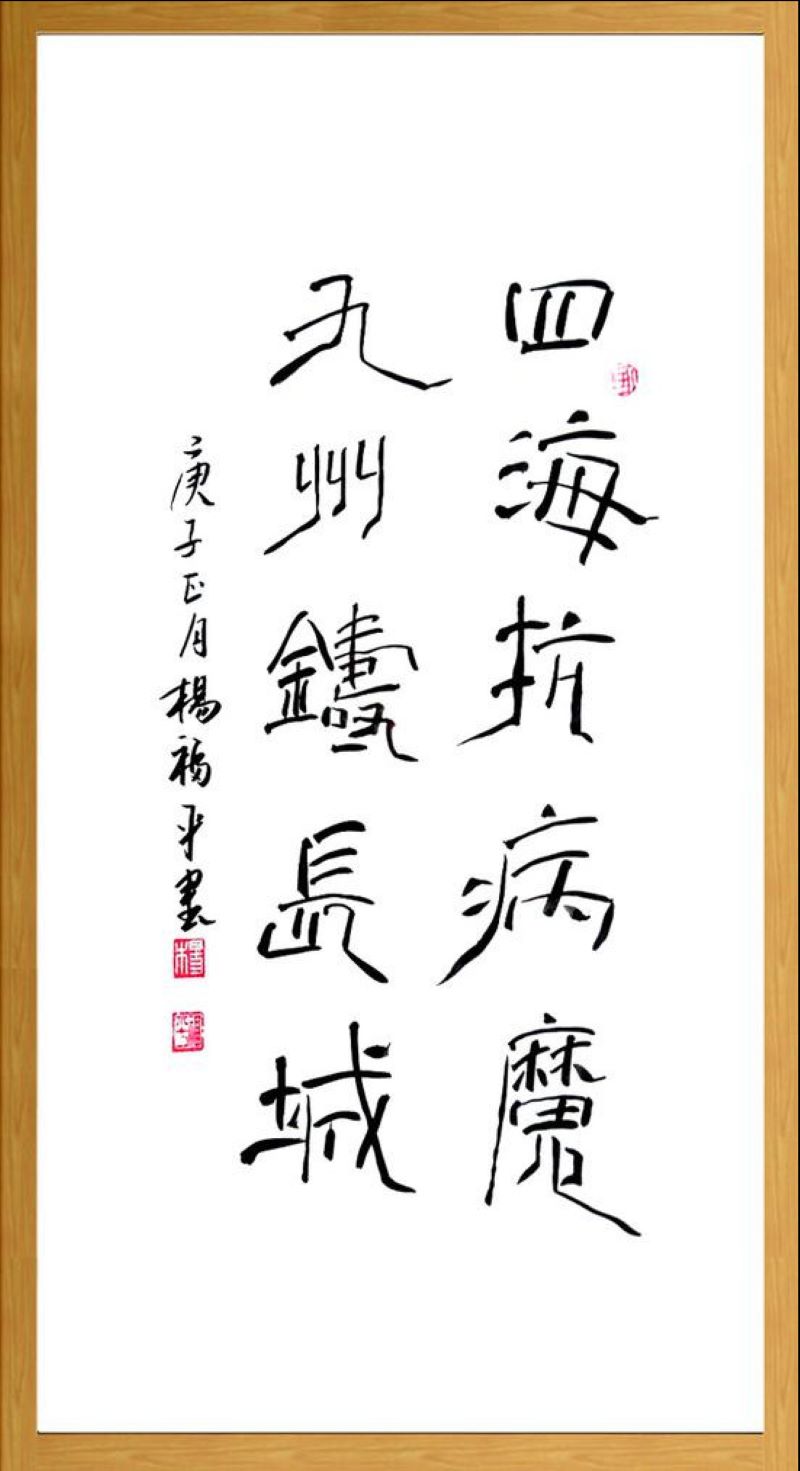 四海抗病魔
九州鑄長城
庚子正月楊福平書